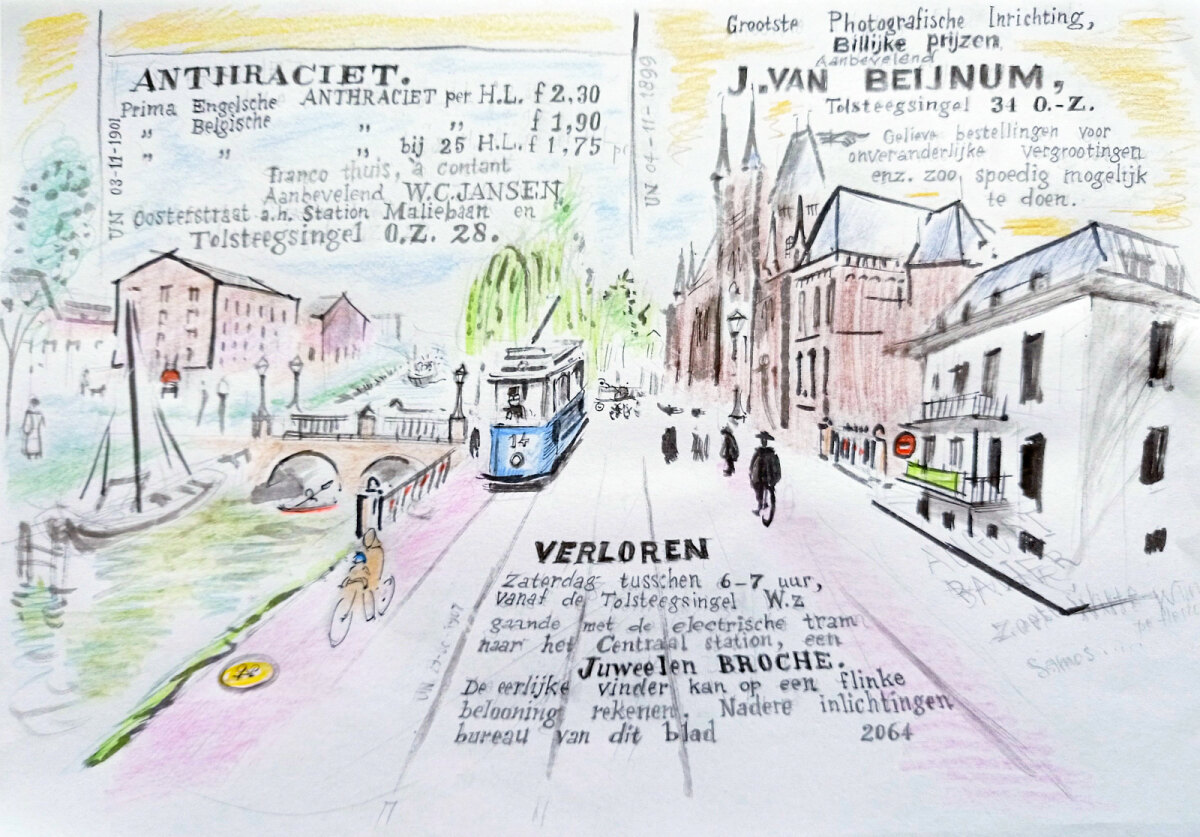 ANTHRACIET.
Prima Engelsche ANTHRACIET per H.L. f 2,30
„ Belgische „ „ f 1,90
„ „ „ bij 25 H.L. f 1,75
franco thuis, à contant
Aanbevelend W.C. JANSEN
Oosterstraat a.h. Station Maliebaan en
Tolsteegsingel O.Z. 28.
UN 03-11-1901
UN 04-11-1899
Grootste Photografische Inrichting,
Billijke prijzen,
Aanbevelend
J. VAN BEIJNUM,
Tolsteegsingel 34 O.-Z.
Gelieve bestellingen voor
onveranderlijke vergrootingen
enz. zoo spoedig mogelijk
te doen.
14
VERLOREN
Zaterdag tusschen 6-7 uur,
vanaf de Tolsteegsingel W.z
gaande met de electrische tram
naar het Centraal station, een
Juweelen BROCHE.
De eerlijke vinder kan op een flinke
belooning rekenen. Nadere inlichtingen
bureau van dit blad 2064
Samos.....